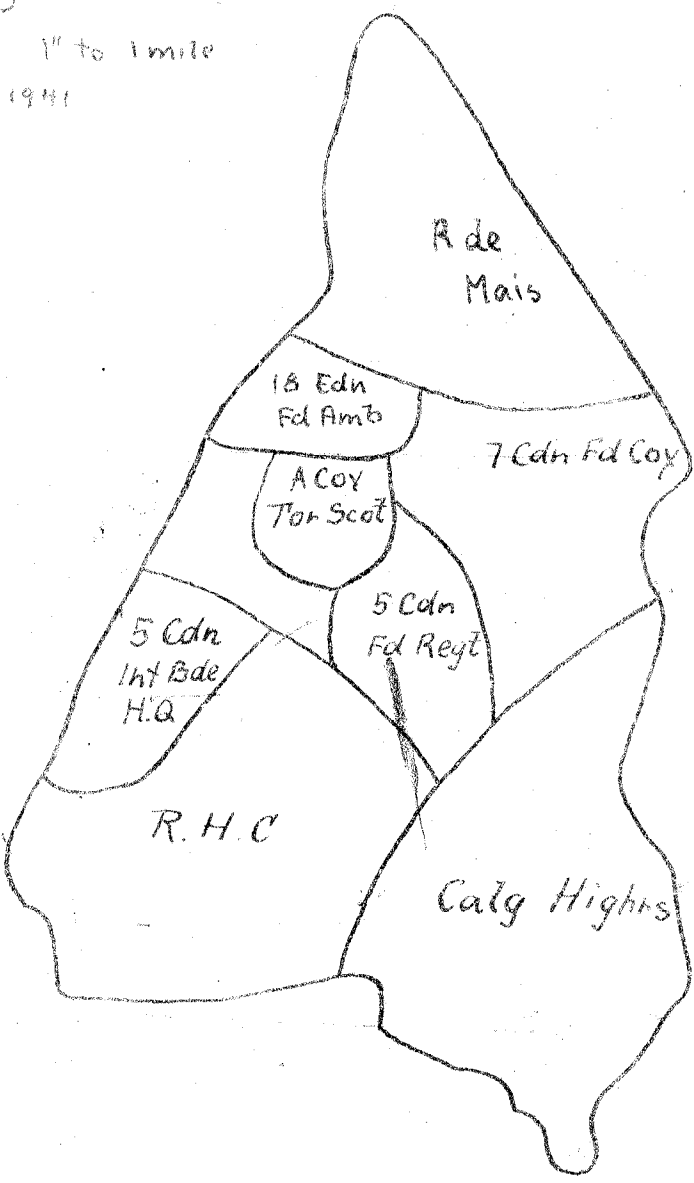 1" to 1 mile
1941
R de
Mais
18 Cdn
Fd Amb
7 Cdn Fd Coy
A Coy
Tor Scot
5 Cdn
Fd Regt
5 Cdn
Inf Bde
H.Q
R. H. C
Calg Highrs